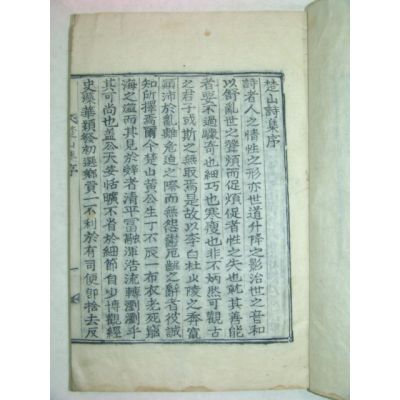 楚山詩集序
詩者人之情性之形亦世道升降之影治世之音和
以舒亂世之聲煩而促煩促者性之失也孰其善能
者要不過驟奇也細巧也寒瘦也非不炳然可觀古
之君子或斯之無取焉是故以李白杜少陵之奔竄
顚沛於亂離危迫之際而無怨鬱厄齪之辭者彼誠
知所擇焉爾今楚山黃公生丁不辰一布衣老死窮
海之濵而其見於辭者清平富融渾浩流轉瀏瀏乎
其可尚也盖公天姿恬曠不屑於細節自少博觀經
史藻華穎發初選鄕貢一不利於有司便卽捨去反
楚山集序
一